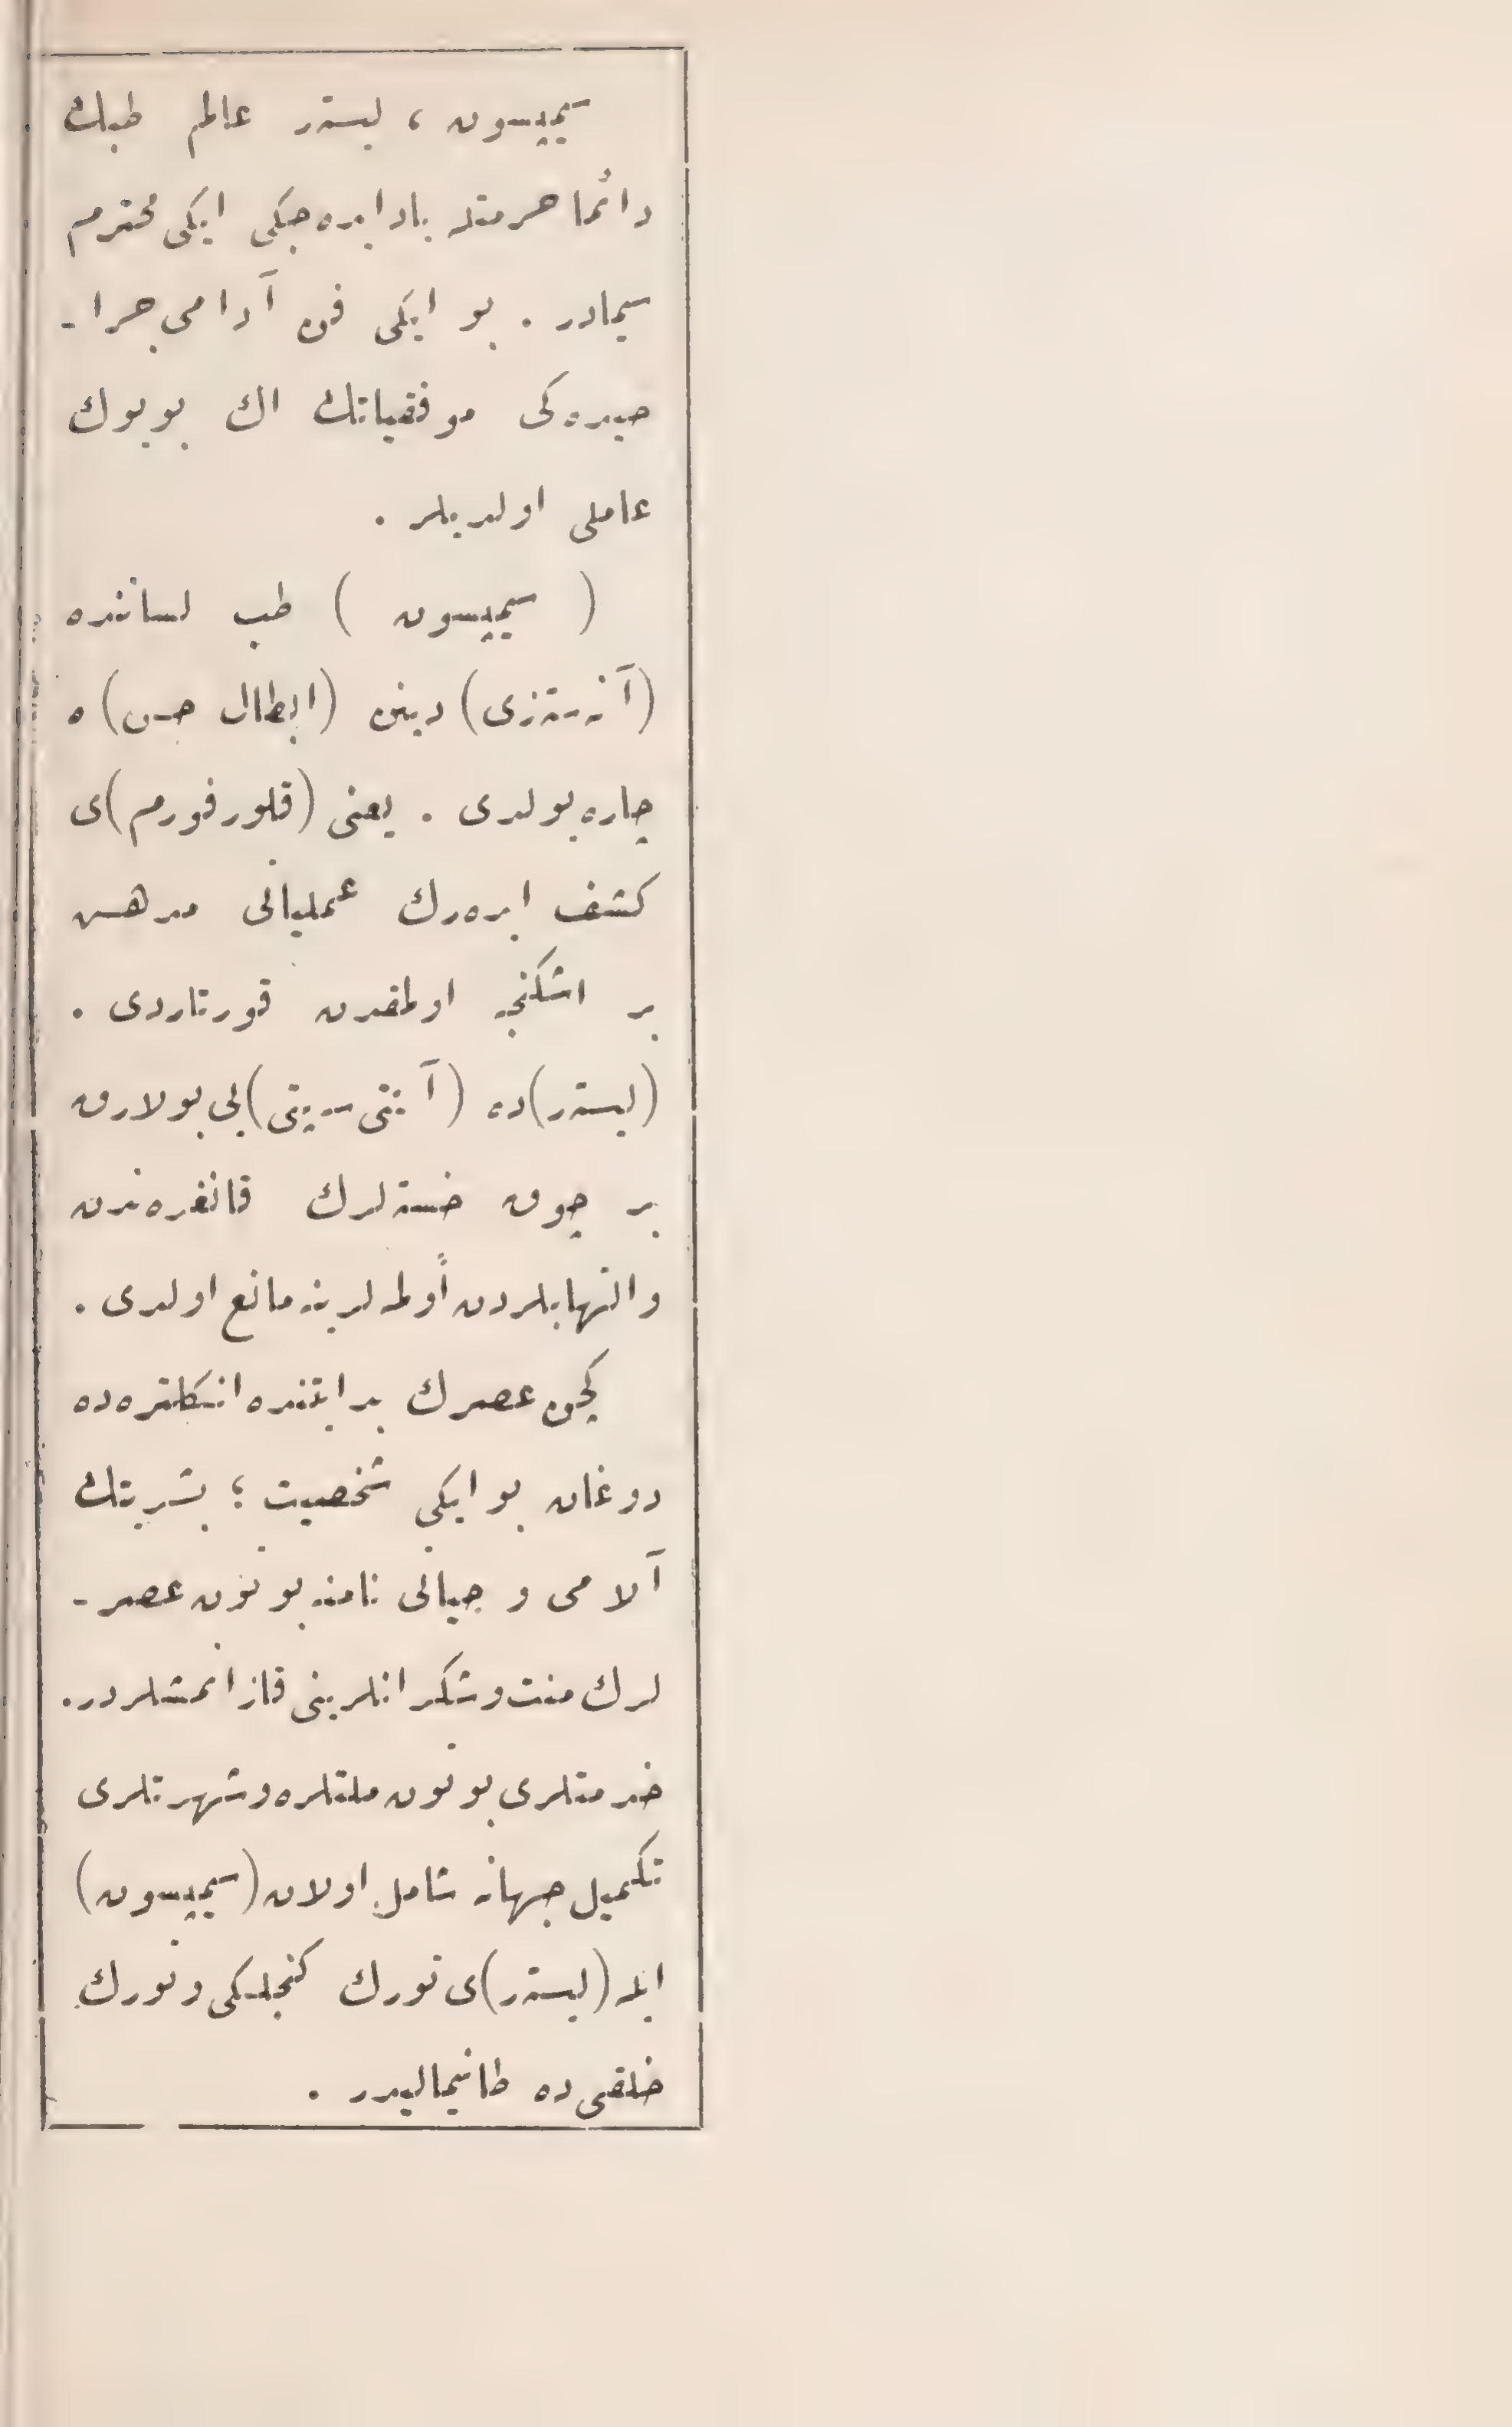 سیمپسون ، لیستر عالم طبك
دائما حرمتله یاد ایده‌جکی ایکی محترم
سیمادر . بو ایکی فن آدامی جرا -
حیده‌کی موفقیاتك اك بویوك
عاملی اولدیلر .
( سیمپسون ) طب لساننده
(آنه‌ستزی) دینن (ابطال حس) ه
چاره بولدی . یعنی (قلورفورم)ی
کشف ایده‌رك عملیاتی مدهش
بر اشکنجه اولمقدن قورتاردی .
(لیستر)ده (آنتی‌سپتی)یی بولارق
بر چوق خسته‌لرك قانغره‌ندن
والتهابلردن أولمه‌لرینه مانع اولدی .
کچن عصرك بدایتنده انکلتره‌ده
دوغان بو ایکی شخصیت ؛ بشریتك
آلامی و حیاتی نامنه بوتون عصر -
لرك منت وشکرانلرینی قازانمشلردر.
خدمتلری بوتون ملتلره وشهرتلری
تکمیل جهانه شامل اولان (سیمپسون)
ایله (لیستر)ی تورك کنجلکی وتورك
خلقی ده طانیمالیدر .